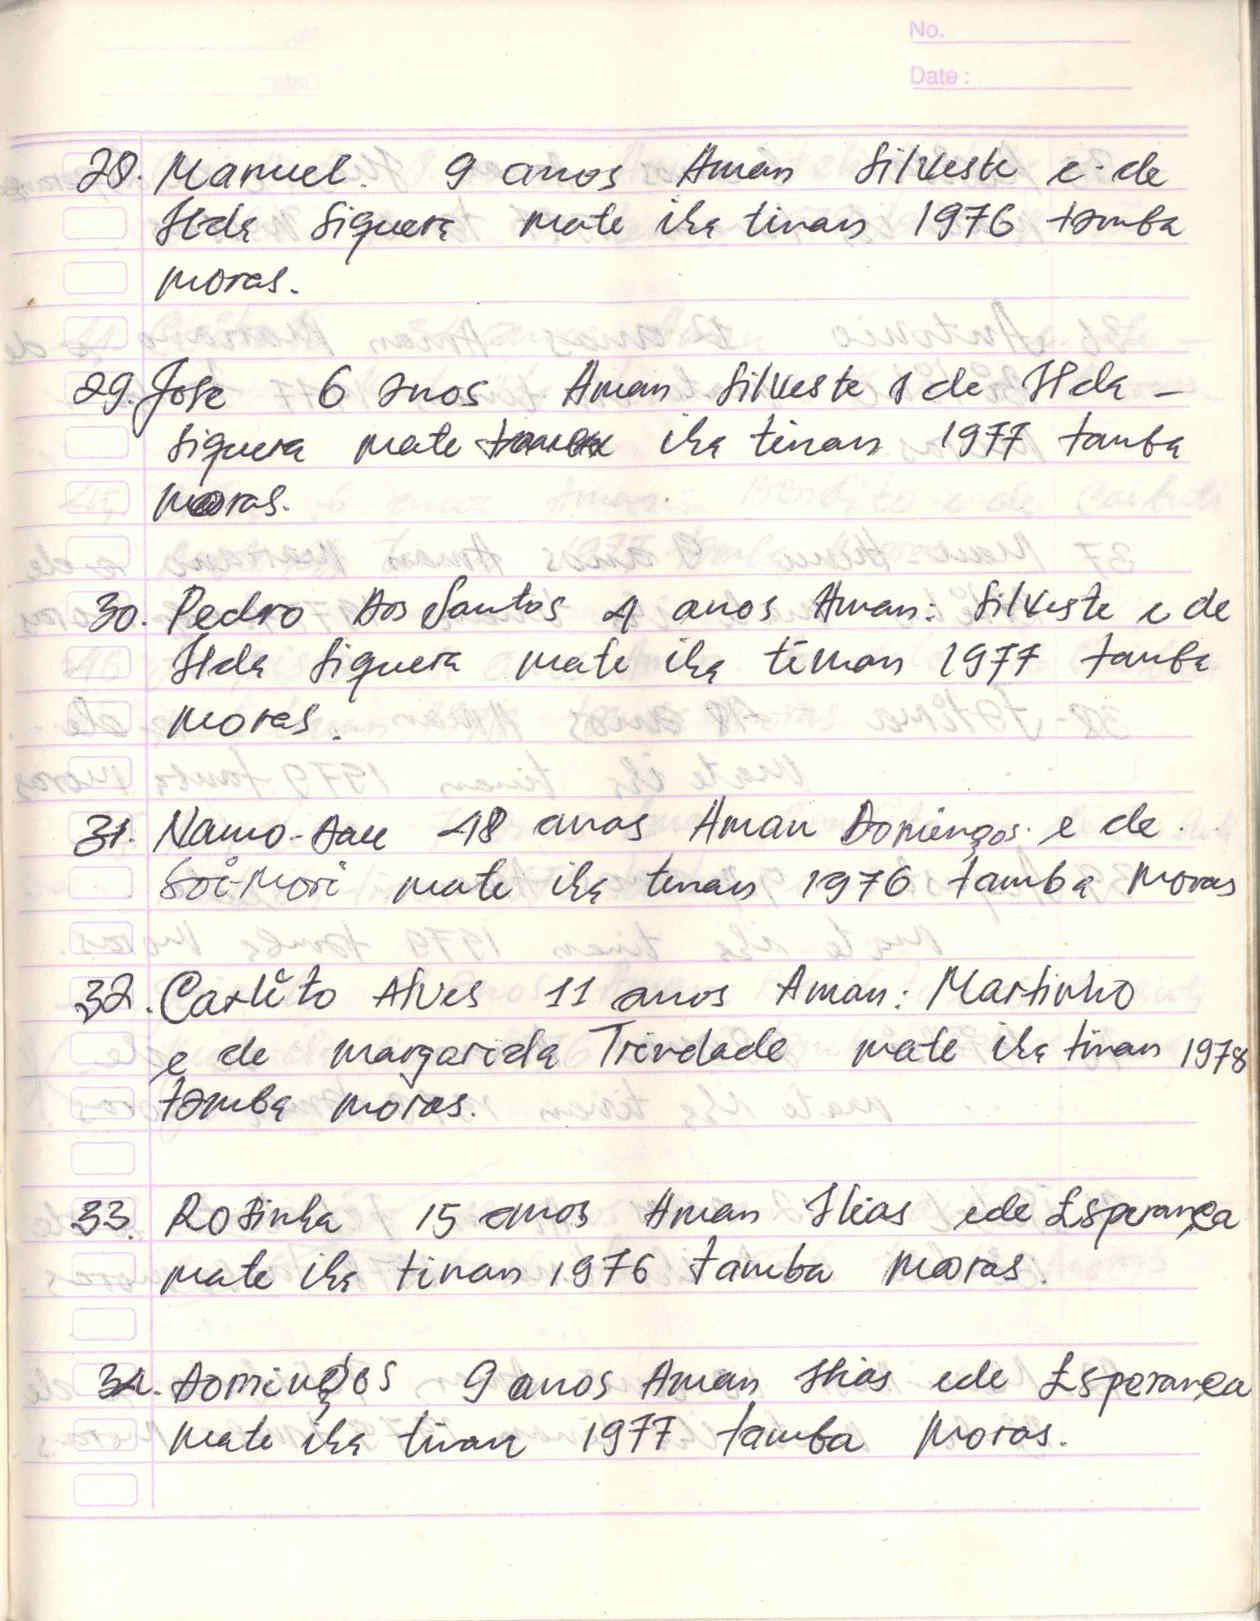 No.
Date:
28. Manuel. 9 anos Aman Silveste e de
Ilda Siquera mate iha tinan 1976 tamba
moras.
29. Jose 6 anos Aman Silveste e de Ilda -
Siquera mate iha tinan 1977 tamba
moras.
30. Pedro Dos Santos 4 anos Aman: Silveste e de
Ilda Siquera mate iha tinan 1977 tamba
moras.
31. Namo-Dau 48 anos Aman Domingos e de
Soi-Mori mate iha tinan 1976 tamba moras
32. Carlito Alves 11 anos Aman: Martinho
e de margarida Trindade mate iha tinan 1978
tamba moras.
33. Rosinha 15 anos Aman Ilias e de Esperança
mate iha tinan 1976 tamba moras.
34. Domingos 9 anos Aman Ilias e de Esperança
mate iha tinan 1977 tamba moras.